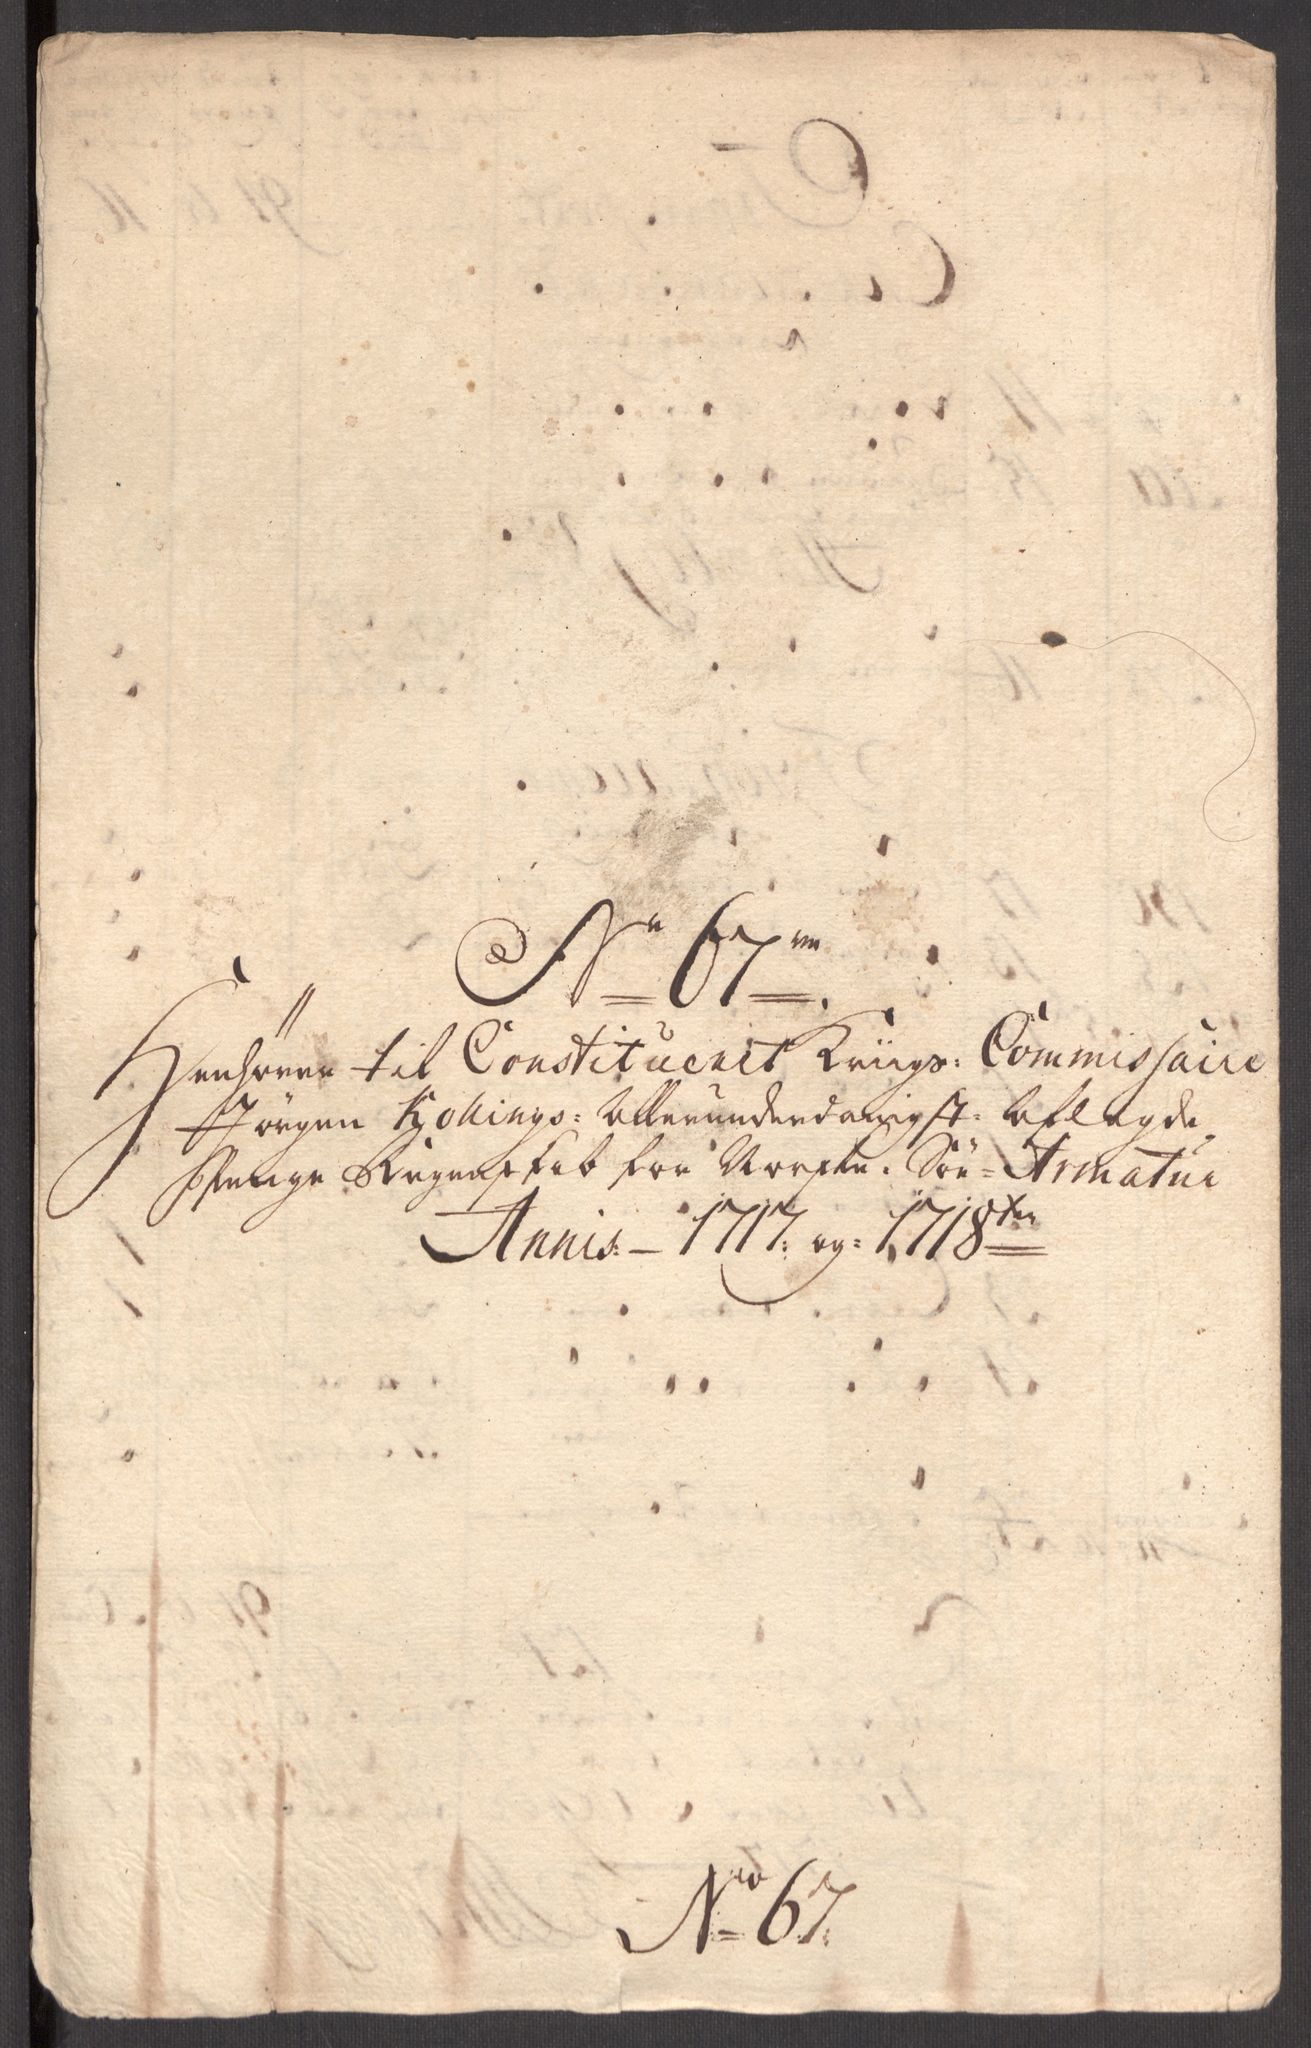 No 67m
Henhörer til Constituerit Kriigs: Commissaire
Jörgen Kollings: Allerunderdanigst: Aflagde
Penge Regenskab for Norske. Söe= Armatur
Annis: 1717: og: 1718ten
No 67